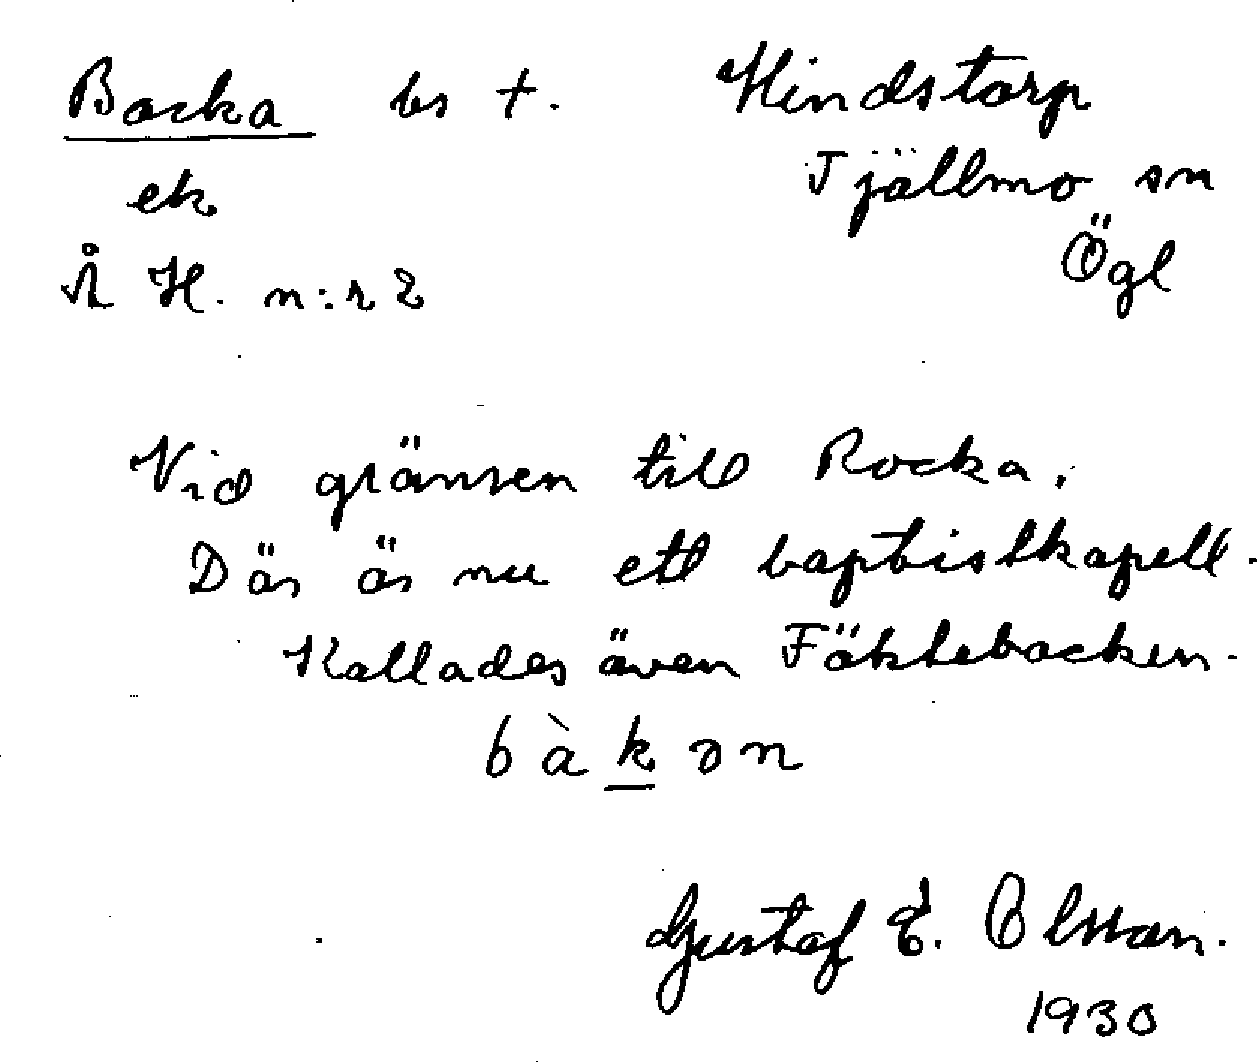 Backa bs +. Hindstorp
ek Tjällmo sn
Å H. n:r 2 Ögl
Vid gränsen till Rocka.
Där är nu ett baptistkapell.
Kallades även Fäktebacken.
b à k ə n
Gustaf E. Olsson.
1930